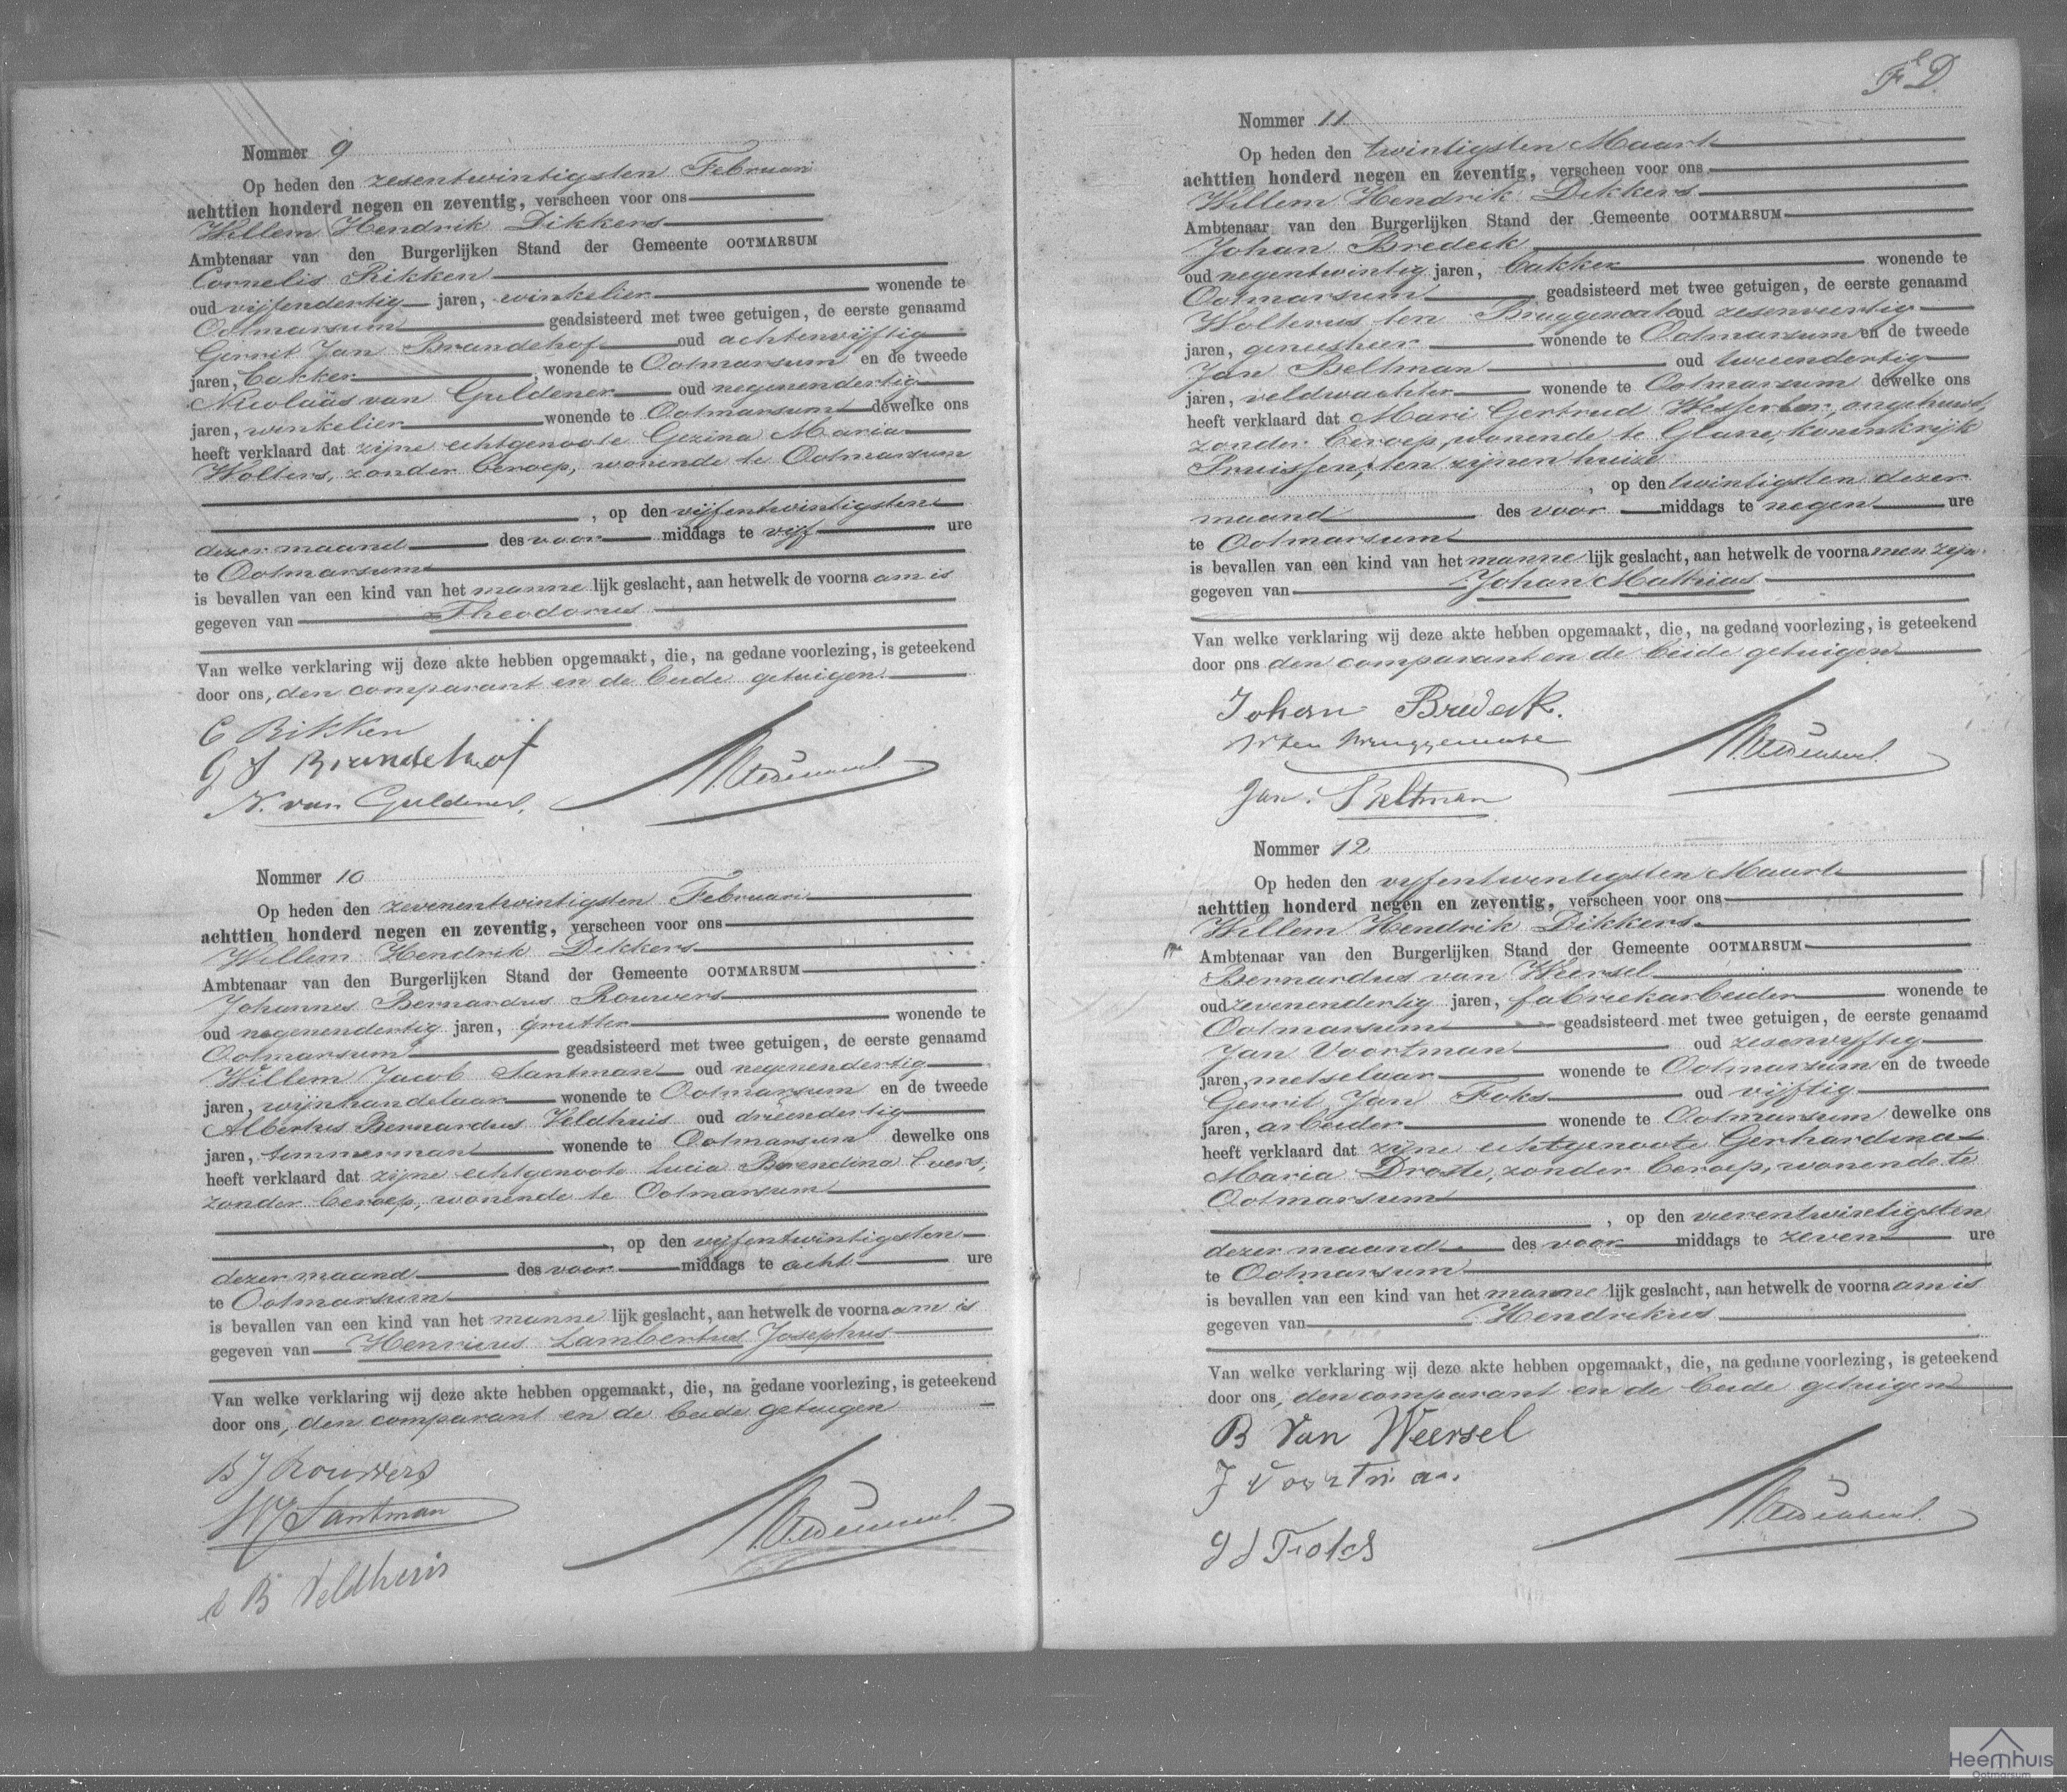 Nommer 9
Op heden den zesentwintigsten Februari
achttien honderd negen en zeventig, verscheen voor ons
Willem Hendrik Dikkers
Ambtenaar van den Burgerlijken Stand der Gemeente OOTMARSUM
Cornelis Rikken
oud vijfendertig jaren, winkelier wonende te
Ootmarsum geadsisteerd met twee getuigen, de eerste genaamd
Gerrit Jan Brandehof oud achtenvijftig
jaren, bakker wonende te Ootmarsum en de tweede
Nicolaäs van Guldener oud negenendertig
jaren, winkelier wonende te Ootmarsum dewelke ons
heeft verklaard dat zijne echtgenoote Gezina Maria
Wolters, zonder beroep, wonende te Ootmarsum
, op den vijfentwintigsten
dezer maand des voor middags te vijf ure
te Ootmarsum
is bevallen van een kind van het manne lijk geslacht, aan hetwelk de voorna am is
gegeven van Theodorus
Van welke verklaring wij deze akte hebben opgemaakt, die, na gedane voorlezing, is geteekend
door ons, den comparant en de beide getuigen.
C Rikken
G J Brandehof
N. van Guldener.
Nommer 10
Op heden den zevenentwintigsten Februari
achttien honderd negen en zeventig, verscheen voor ons
Willem Hendrik Dikkers
Ambtenaar van den Burgerlijken Stand der Gemeente OOTMARSUM
Johannes Bernardus Rouwers
oud negenendertig jaren, grutter wonende te
Ootmarsum geadsisteerd met twee getuigen, de eerste genaamd
Willem Jacob Santman oud negenendertig
jaren, wijnhandelaar wonende te Ootmarsum en de tweede
Albertus Bernardus Veldhuis oud drieendertig
jaren, timmerman wonende te Ootmarsum dewelke ons
heeft verklaard dat zijne echtgenoote Lucia Berendina Evers,
zonder beroep, wonende te Ootmarsum
, op den vijfentwintigsten
dezer maand des voor middags te acht ure
te Ootmarsum
is bevallen van een kind van het manne lijk geslacht, aan hetwelk de voorna am is
gegeven van Henricus Lambertus Josephus
Van welke verklaring wij deze akte hebben opgemaakt, die, na gedane voorlezing, is geteekend
door ons, den comparant en de beide getuigen
B J Rouwers
W J Santman
A B Veldhuis
Nommer 11
Op heden den twintigsten Maart
achttien honderd negen en zeventig, verscheen voor ons
Willem Hendrik Dikkers
Ambtenaar van den Burgerlijken Stand der Gemeente OOTMARSUM
Johan Bredeck
oud negentwintig jaren, bakker wonende te
Ootmarsum geadsisteerd met twee getuigen, de eerste genaamd
Wolterus ten Bruggencate oud zesenveertig
jaren, geneesheer wonende te Ootmarsum en de tweede
Jan Beltman oud tweeendertig
jaren, veldwachter wonende te Ootmarsum dewelke ons
heeft verklaard dat Mari Gertrud ongehuwd,
zonder beroep, wonende te Glane, koninkrijk
Pruissen, ten zijnen huize
, op den twintigsten dezer
maand des voor middags te negen ure
te Ootmarsum
is bevallen van een kind van het manne lijk geslacht, aan hetwelk de voorna men zijn
gegeven van Johan Mathias
Van welke verklaring wij deze akte hebben opgemaakt, die, na gedane voorlezing, is geteekend
door ons den comparant en de beide getuigen
Johan Bredeck.
W ten Bruggencate
Jan Beltman
Nommer 12
Op heden den vijfentwintigsten Maart
achttien honderd negen en zeventig, verscheen voor ons
Willem Hendrik Dikkers
Ambtenaar van den Burgerlijken Stand der Gemeente OOTMARSUM
Bernardus van Weersel
oud zevenendertig jaren, fabriekarbeider wonende te
Ootmarsum geadsisteerd met twee getuigen, de eerste genaamd
Jan Voortman oud zesenvijftig
jaren, metselaar wonende te Ootmarsum en de tweede
Gerrit Jan Foks oud vijftig
jaren, arbeider wonende te Ootmarsum dewelke ons
heeft verklaard dat zijne echtgenoote Gerhardina
Maria Droste, zonder beroep, wonende te
Ootmarsum
, op den vierentwintigsten
dezer maand des voor middags te zeven ure
te Ootmarsum
is bevallen van een kind van het manne lijk geslacht, aan hetwelk de voorna am is
gegeven van Hendrikus
Van welke verklaring wij deze akte hebben opgemaakt, die, na gedane voorlezing, is geteekend
door ons, den comparant en de beide getuigen
B Van Weersel
J Voortman
Heemhuis
Ootmarsum